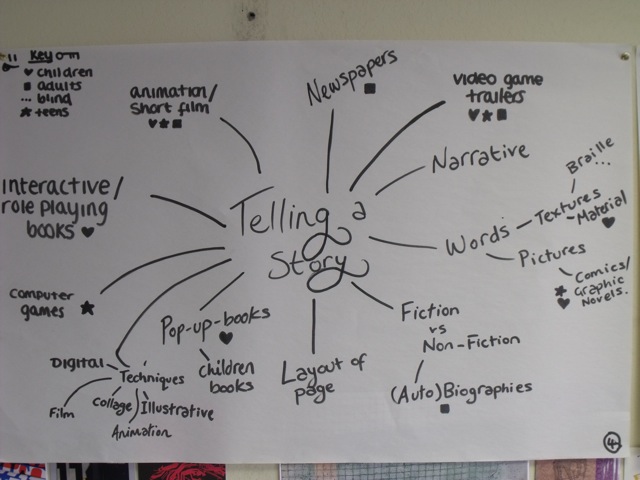 Key
♥ children
■ adults
... blind
★ teens
animation/
short film
♥ ★ ■
Newspapers
■
video game
trailers
♥ ★ ■
Narrative
Interactive/
role playing
books ♥
Telling a
Story
Words
Textures
Braille
...
Material
♥
Pictures
Comics/
★ Graphic
♥ Novels.
computer
games ★
Pop-up-books
♥
children
books
Layout of
page
Fiction
vs
Non-Fiction
(Auto)Biographies
■
DIGITAL
Techniques
Film
Collage
Illustrative
Animation
4